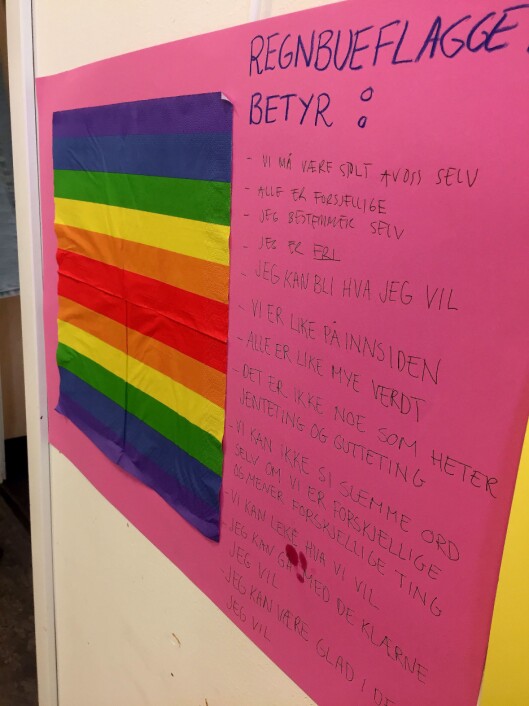 REGNBUEFLAGGE
BETYR :
- VI MÅ VÆRE STOLT AV OSS SELV
- ALLE ER FORSJELLIGE
- JEG BESTEMMER SELV
- JEG ER FRI
- JEG KAN BLI HVA JEG VIL
- VI ER LIKE PÅ INNSIDEN
- ALLE ER LIKE MYE VERDT
- DET ER IKKE NOE SOM HETER
JENTETING OG GUTTETING
- VI KAN IKKE SI SLEMME ORD
SELV OM VI ER FORSKJELLIGE
OG MENER FORSKJELLIGE TING
- VI KAN LEKE HVA VI VIL
- JEG KAN GÅ MED DE KLÆRNE
JEG VIL
- JEG KAN VÆRE GLAD I DE
JEG VIL